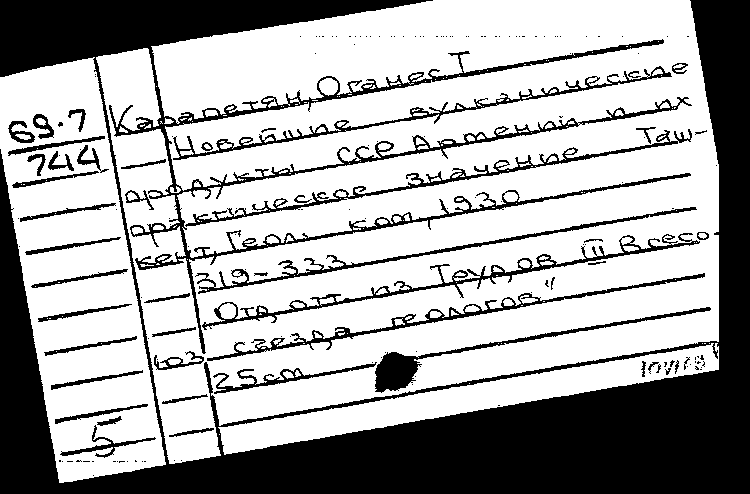 Карапетян, Оганес Т
69.7
Новейшие вулканические
744
продукты ССР Армении и их
практическое значение Таш-
кент, Геол. ком, 1930
319-333.
"Отд. отт. из Трудов III Всесо-
юз съезда геологов"
25 cm
5